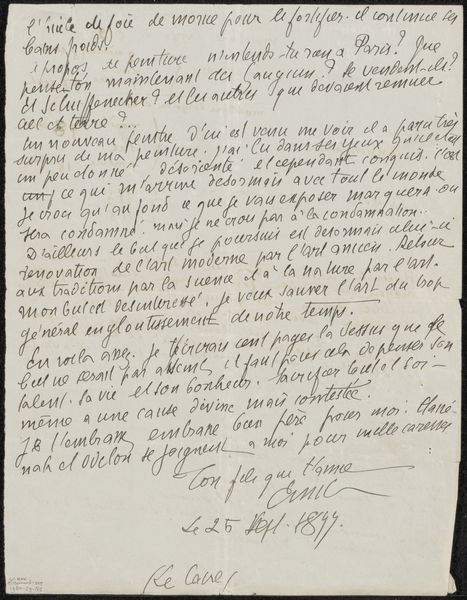 l'huile de foie de morue pour le fortifier. il continue ses
bains froids.
à propos de peinture n'entends-tu rien à Paris? Que
pense-t-on maintenant des Gauguin? Se vendent-ils?
Et Schuffenecker? et les autres que devaient remuer
ciel et terre?...
un nouveau peintre d'ici est venu me voir il a paru très
surpris de ma peinture. j'ai lu dans ses yeux qu'il était
un peu étonné désorienté et cependant conquis. C'est
ce qui m'arrive désormais avec tout le monde
Je crois qu'au fond ce que je vais exposer marquera. ou
sera condamné. mais je ne crois pas à la condamnation.
D'ailleurs le but que je poursuis est désormais celui-ci
rénovation de l'art moderne par l'art ancien. Retour
aux traditions par la science et à la nature par l'art.
mon but est désintéressé. je veux sauver l'art du trop
général engloutissement de notre temps.
En voilà assez. Je t'écrirais cent pages là dessus que le
but ne serait pas atteint, il faut pour cela dépenser son
talent. sa vie et son bonheur. Sacrifier tout et soi-
même à une cause divine mais contestée.
Je t'embrasse embrasse bien père pour moi. Hané-
nah et Odilon se joignent à moi pour mille caresses
Ton fils qui t'aime
Emile
Le 25 Sept. 1897.
(Le Caire)